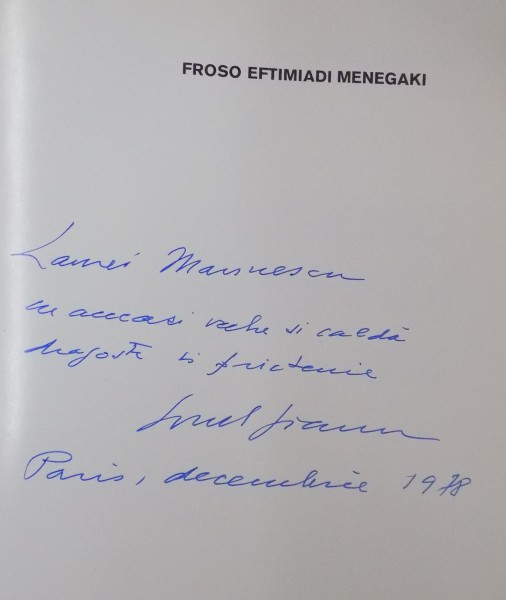 FROSO EFTIMIADI MENEGAKI
Laurei Marinescu
cu aceeasi veche si caldă
dragoste si prietenie
Ionel Jianu
Paris, decembrie 1978